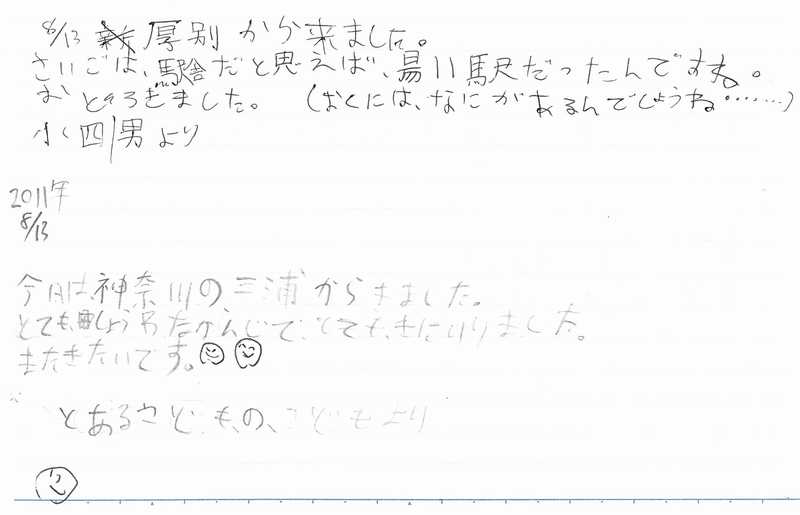 8/13 厚別から来ました。
さいごは、駅舎だと思えば、湯川駅だったんですね。
おどろきました。 (おくには、なにがあるんでしょうね……)
小四男より
2011年
8/13
今日は神奈川の三浦からきました。
とても、かんじで、とても、きにいりました。
またきたいです。
とあるさとも、の、こどもより